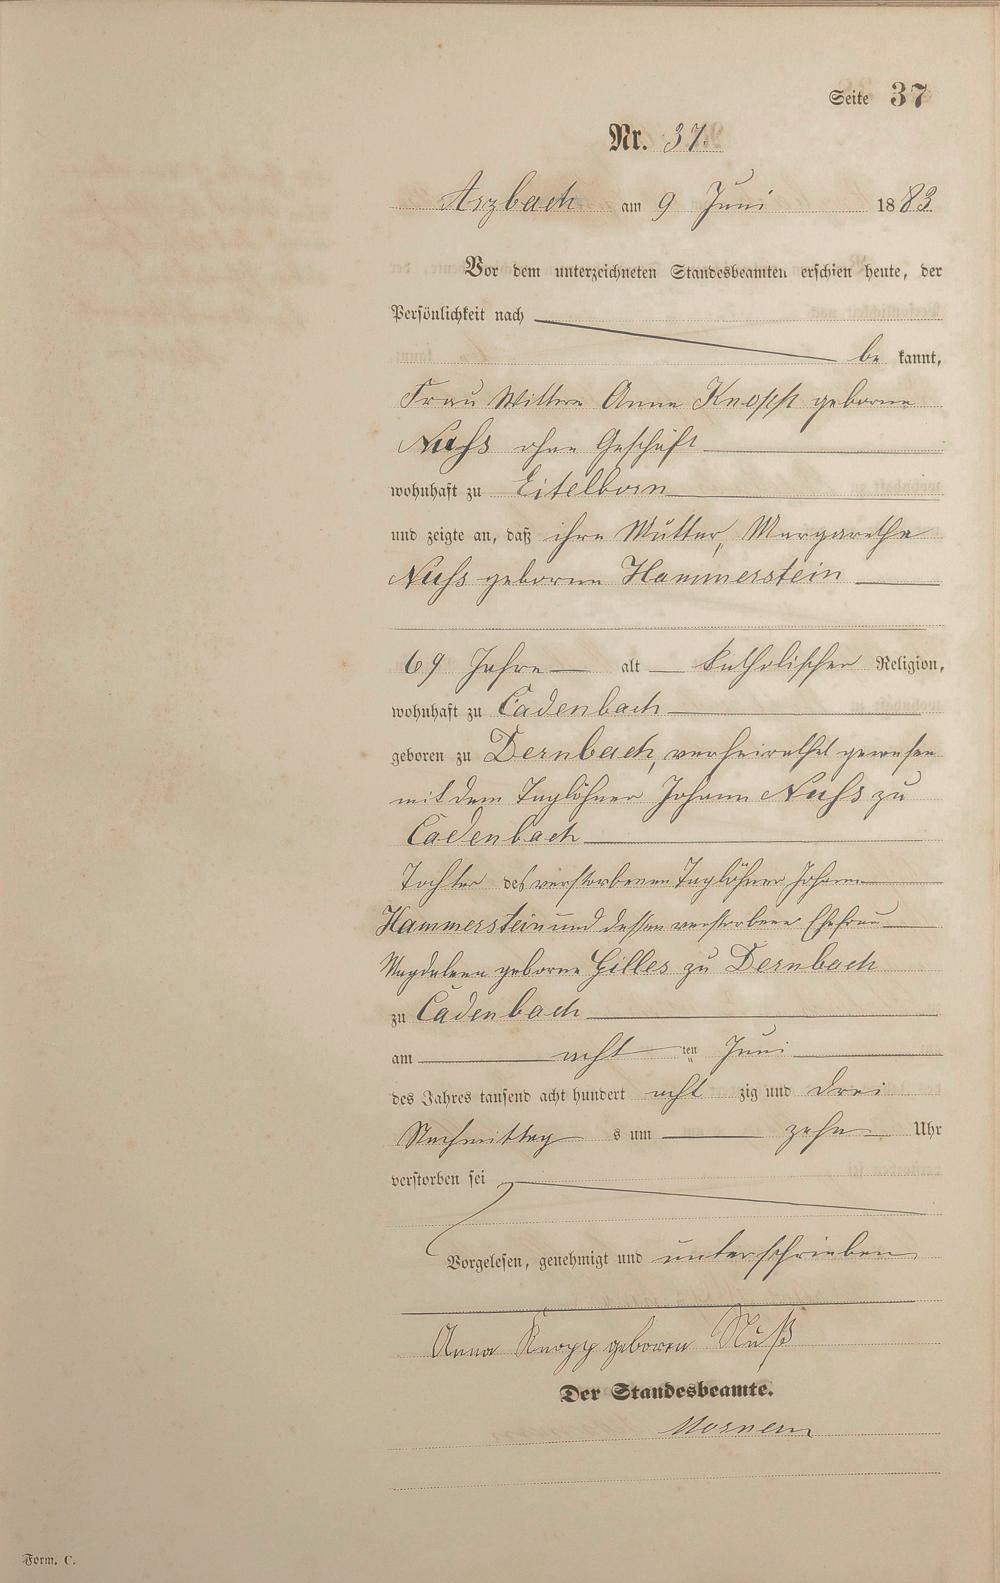 Seite 37
Nr. 37.
Arzbach am 9 Juni 1883
Vor dem unterzeichneten Standesbeamten erschien heute, der
Persönlichkeit nach
be kannt,
Frau Wittwe Anna Knopp geborene
Nuhs ohne Geschäft
wohnhaft zu Eitelborn
und zeigte an, daß ihre Mutter, Margaretha
Nuhs geborene Hammerstein
69 Jahre alt katholischer Religion,
wohnhaft zu Cadenbach
geboren zu Dernbach, verheirathet gewesen
mit dem Taglöhner Johann Nuhs zu
Cadenbach
Tochter des verstorbenen Taglöhner Johann
Hammerstein und dessen verstorbene Ehefrau
Magdalena geborne Gilles zu Dernbach
zu Cadenbach
am acht ten Juni
des Jahres tausend acht hundert acht zig und drei
Nachmittag s um zehn Uhr
verstorben sei
Vorgelesen, genehmigt und unterschrieben
Anna Knopp geboren Nuß
Der Standesbeamte.
Form. C.